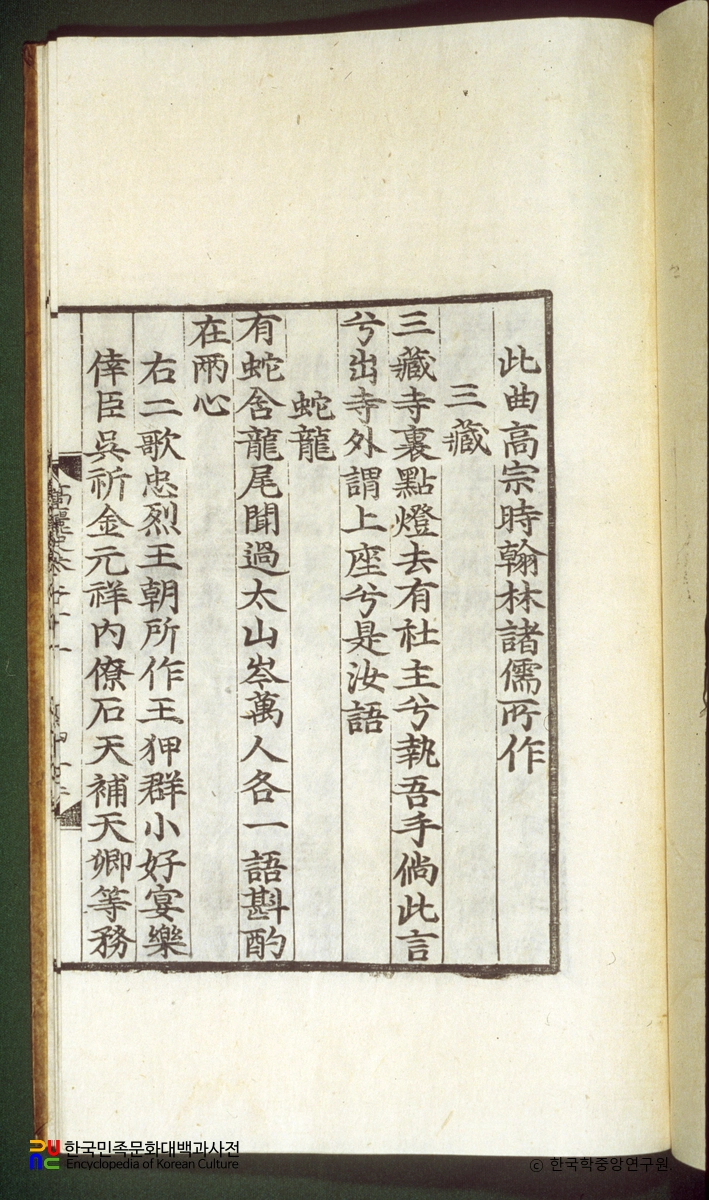 此曲高宗時翰林諸儒所作
三藏
三藏寺裏點燈去有社主兮執吾手倘此言
兮出寺外謂上座兮是汝語
蛇龍
有蛇含龍尾聞過太山岑萬人各一語斟酌
在兩心
右二歌忠烈王朝所作王狎群小好宴樂
倖臣吳祈金元祥內僚石天補天卿等務
高麗史卷七十一
한국민족문화대백과사전
Encyclopedia of Korean Culture
© 한국학중앙연구원